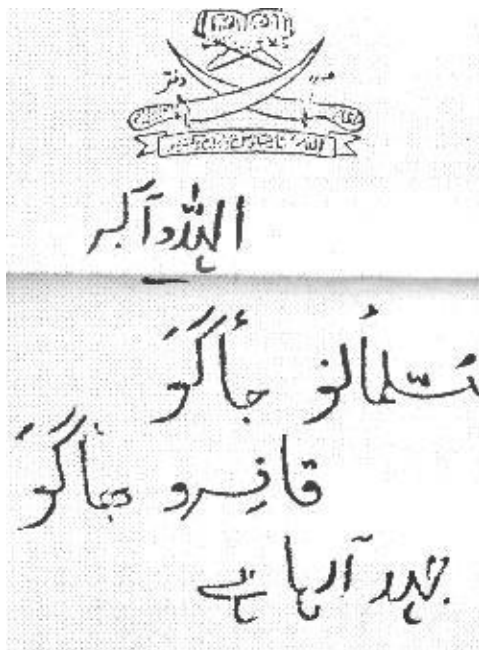 دفتر
اللہ وآکبر
مُسّلمأنو جأگوَ
قافِرو بھاگوَ
جہد آرہا ہے